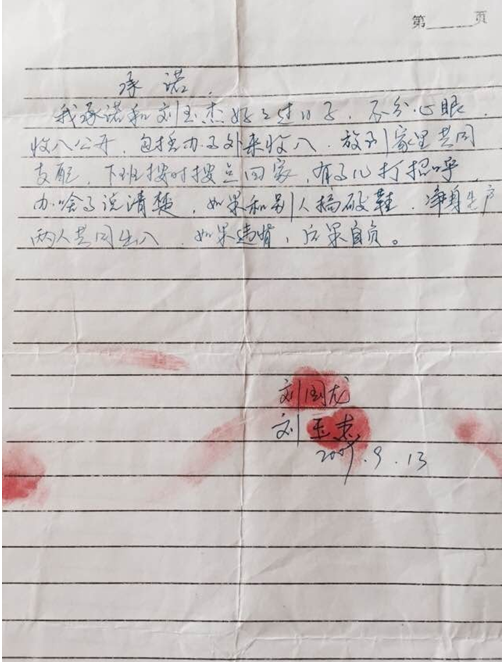 第 页
承诺.
我承诺和刘玉杰好好过日子.不分心眼
收入公开.包括办事外来收入.放到家里共同
支配.下班按时按点回家.有事儿打招呼.
办啥事说清楚.如果和别人搞破鞋.净身出户
两人共同出入.如果违背,后果自负。
刘国龙
刘玉杰
2007.9.13